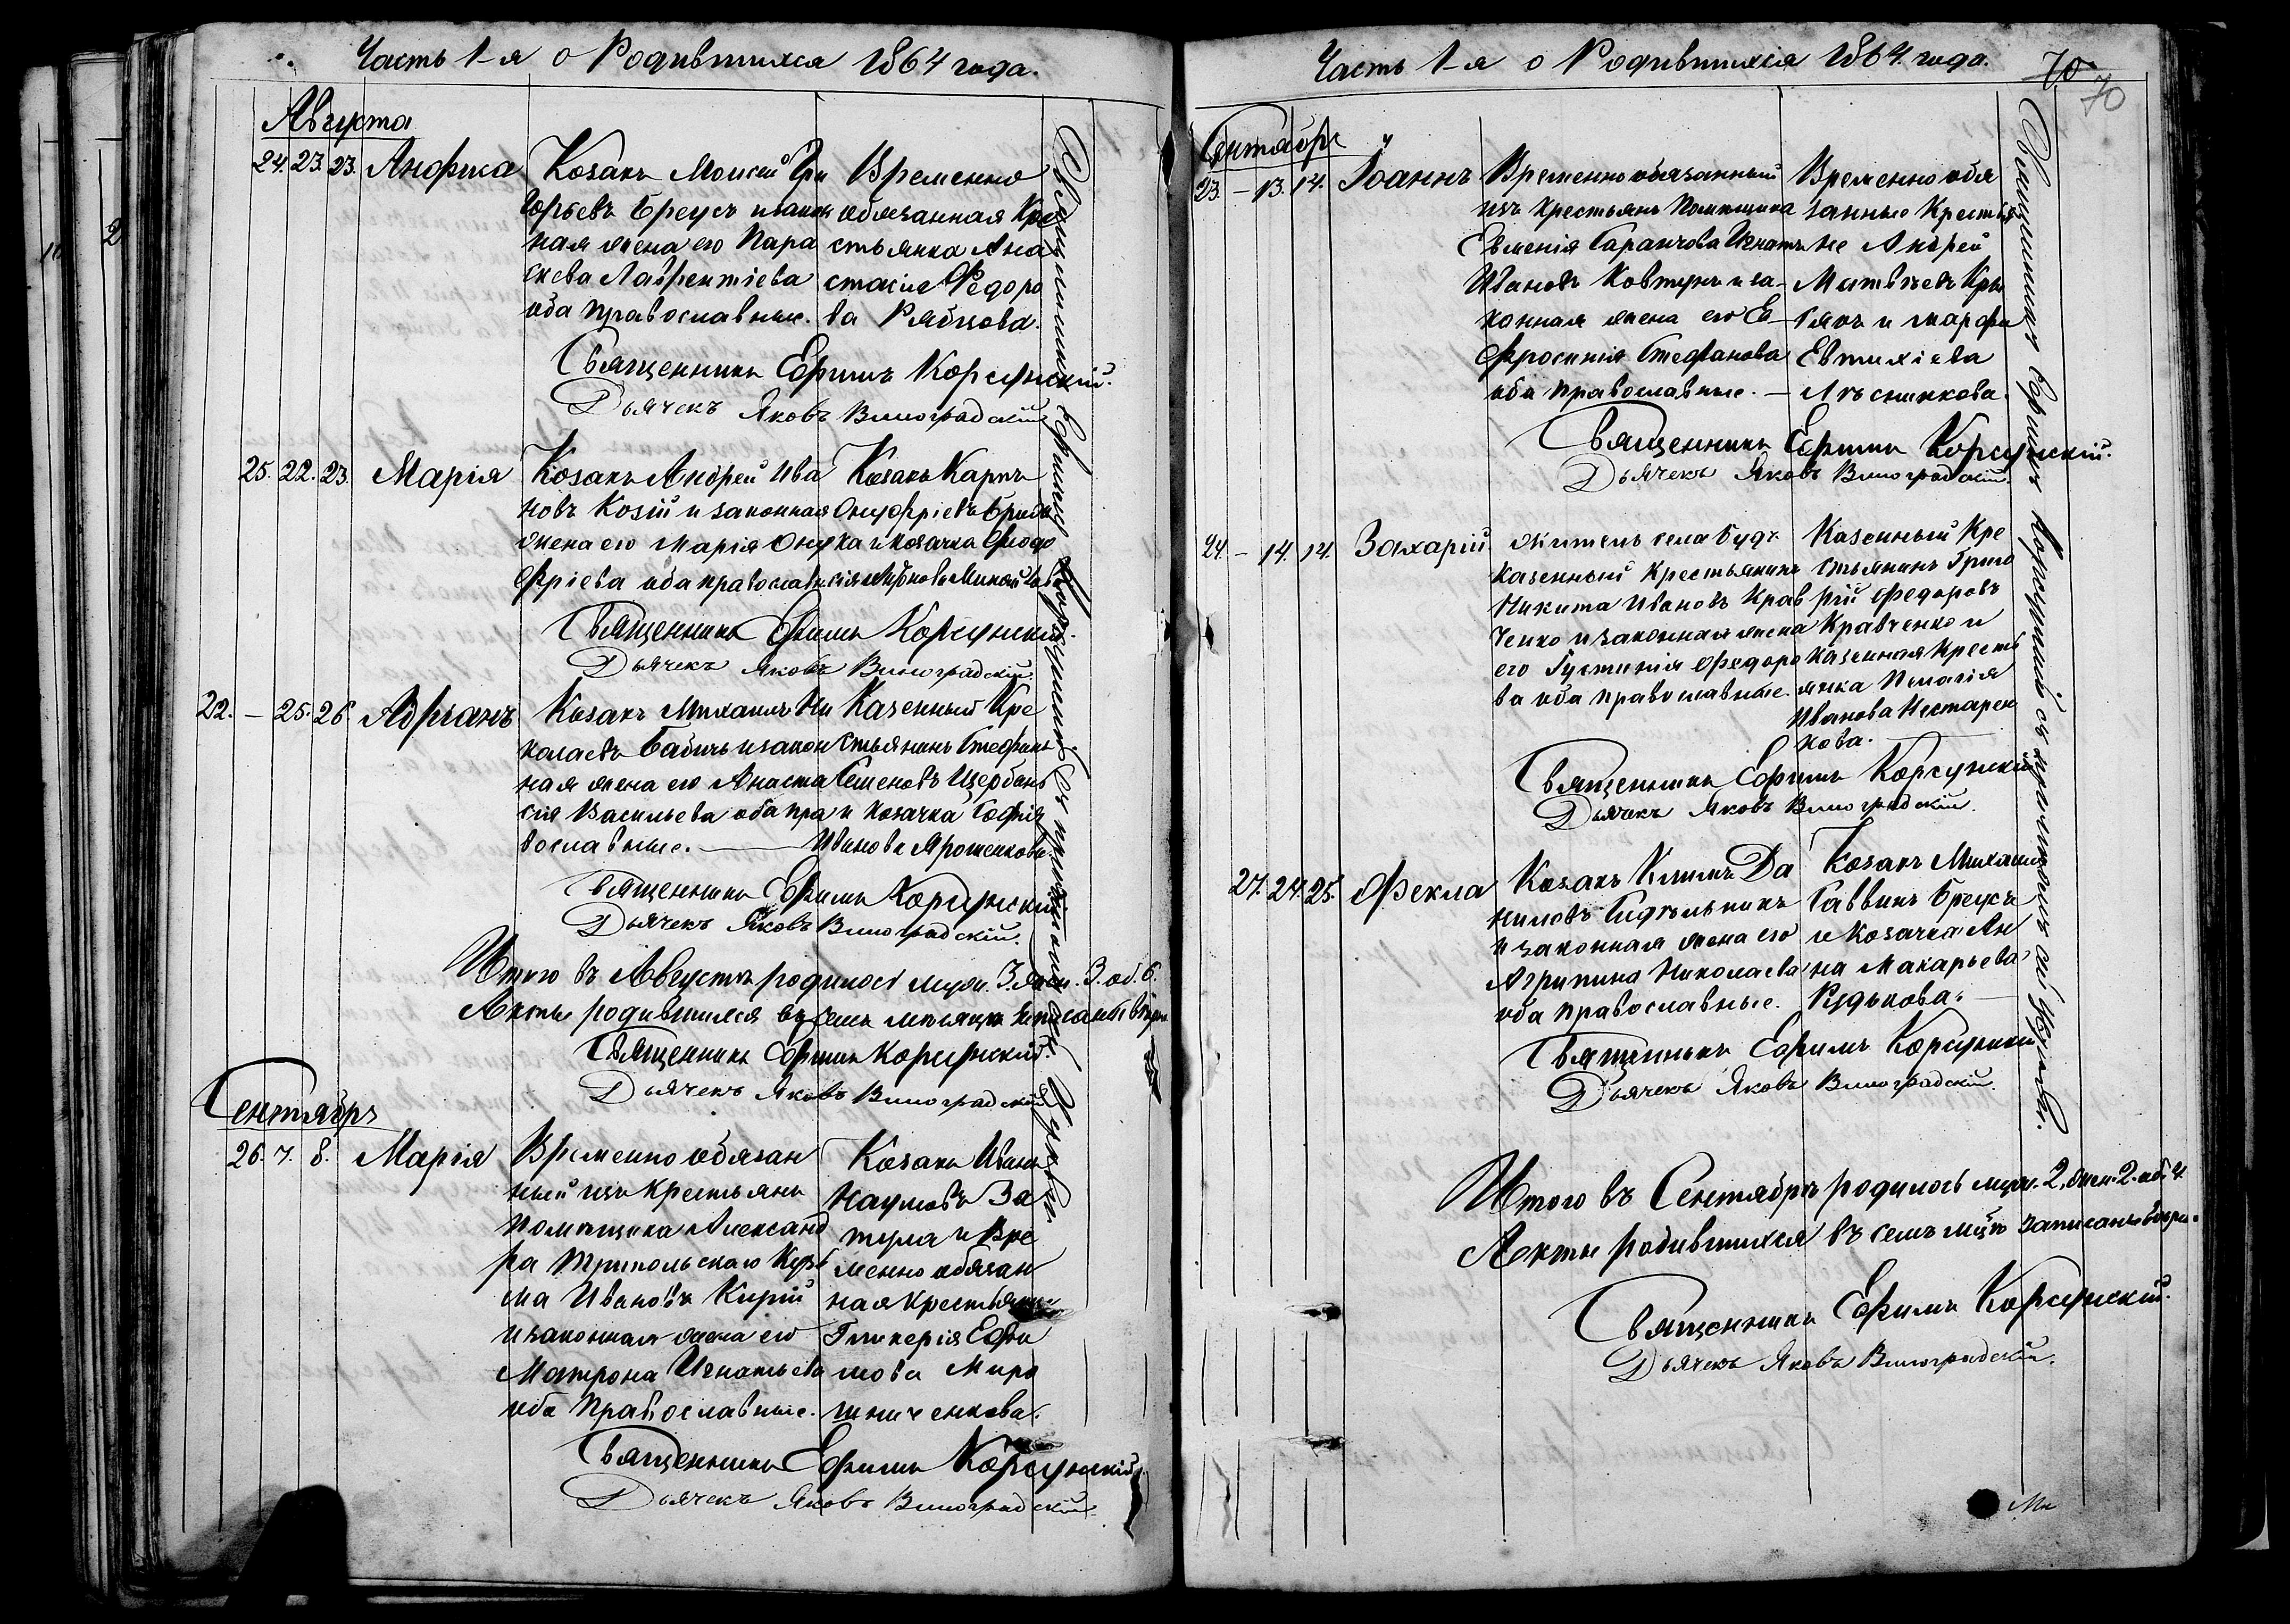 Часть 1-я о Родившихся 1864 года.
Августа
24. 23. 23. Анфиса
Козакъ Моисей Гри
горьевъ Бреусъ и закон
ная жена его Пара
скева Лаврентіева
оба православные.
Временно
обязанная Кре
стьянка Ана
стасія Федоро
ва Рябцова.
Священникъ Ефимъ Корсунскій.
Дьячекъ Яковъ Виноградскій
25. 22. 23. Марія
Козакъ Андрей Ива
новъ Козій и законная
жена его Марія Ону
фріева оба православн.
Козакъ Карпъ
Онуфріевъ
ка и козачка Феодо
сія
Священникъ Ефимъ Корсунскій.
Дьячекъ Яковъ Виноградскій.
22. — 25. 26. Адріанъ
Козакъ Михаилъ Ни
колаевъ Бабичъ и закон
ная жена его Анаста
сія Васильева оба пра
вославные.
Казенный Кре
стьянинъ Стефанъ
Семеновъ Щербань
и козачка Софія
Иванова Ярошенкова.
Священникъ Ефимъ Корсунскій
Дьячекъ Яковъ Виноградскій.
Итого въ Августѣ родилось муж. 3. жен. 3. об. 6.
Акты родившихся въ семъ мѣсяцѣ писаны вѣрно
Священникъ Ефимъ Корсунскій.
Дьячекъ Яковъ Виноградскій
Сентябрь
26. 7. 8. Марія
Временно обязан
ный изъ крестьянъ
помѣщика Александ
ра Трипольскаго Кузь
ма Ивановъ Кирій
и законная жена его
Матрона Игнатьева
оба Православные.
Козакъ Иванъ
Наумовъ За
тула и Вре
менно обязан
ная крестьянка
Гликерія Ефи
мова Миро
шниченкова.
Священникъ Ефимъ Корсунскій.
Дьячекъ Яковъ Виноградскій.
Священникъ Ефимъ Корсунскій съ причтомъ
Часть 1-я о Родившихся 1864. года.
70.
70
Сентябрь
23. — 13. 14. Іоаннъ
Временно обязанный
изъ крестьянъ Помѣщика
Евменія Гаранчова Игнатъ
Ивановъ Ковтунъ и за-
конная жена его Ев
фросинія Стефанова
оба православные. —
Временно обя
занные Крестья
не Андрей
Матвѣевъ
и Марфа
Евтихіева
Лѣсникова.
Священникъ Ефимъ Корсунскій.
Дьячекъ Яковъ Виноградскій.
24. — 14. 14. Захарій
Житель села Будъ
казенный крестьянинъ
Никита Ивановъ Крав
ченко и законная жена
его Густинія Федоро
ва оба православные.
Казенный Кре
стьянинъ Григо
рій Федоровъ
Кравченко и
казенная кресть
янка Пелагія
Иванова Нестарен
кова.
Священникъ Ефимъ Корсунскій
Дьячекъ Яковъ Виноградскій.
27. 24. 25. Фекла
Козакъ Климъ Да
ниловъ Сидѣльникъ
и законная жена его
Агрипина Николаева
оба православные.
Козакъ Михаилъ
Саввинъ Бреусъ
и Козачка Ан
на Макарьева
Рудькова.
Священникъ Ефимъ Корсунскій
Дьячекъ Яковъ Виноградскій.
Итого въ Сентябрѣ родилось муж. 2. жен. 2. об. 4.
Акты родившихся въ семъ мѣс. записаны вѣрно.
Священникъ Ефимъ Корсунскій.
Дьячекъ Яковъ Виноградскій.
Священникъ Ефимъ Корсунскій съ причтомъ